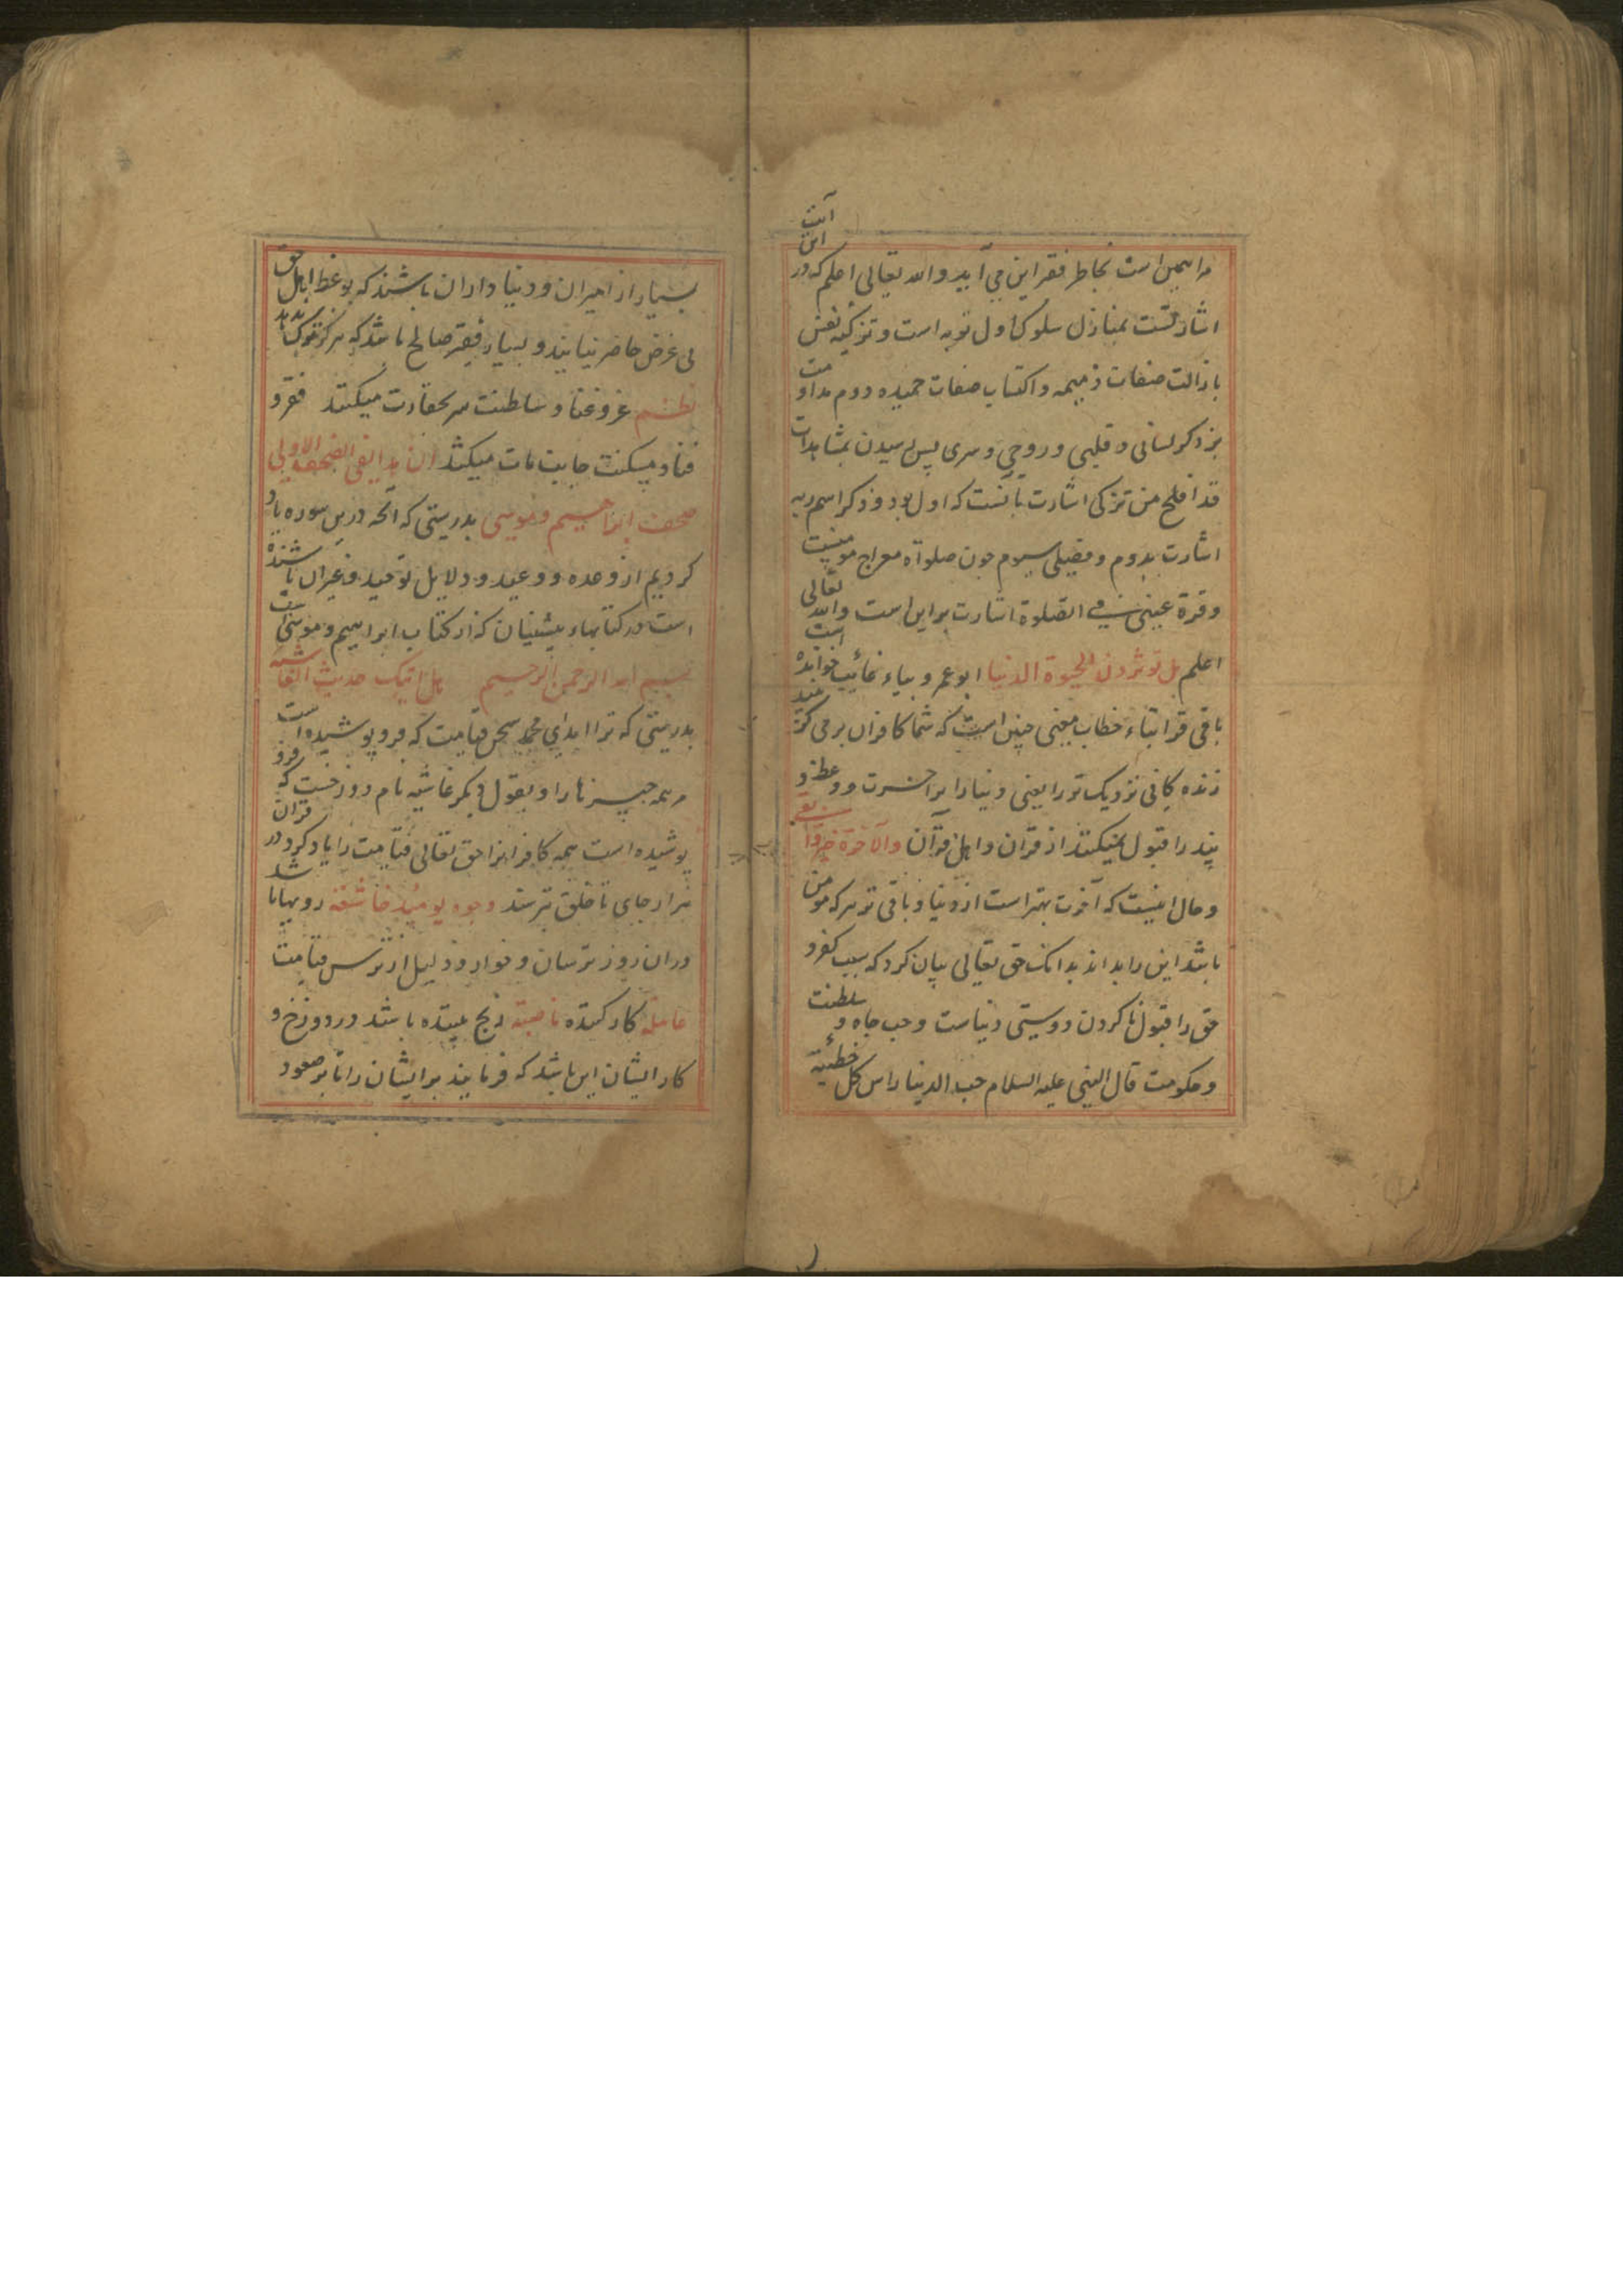 مراد همین است بخاطر فقیر این می آید والله تعالی اعلم که در این آیت
اشارتست بمنازل سلوک اول توبه است و تزکیه نفس
بازالت صفات ذمیمه و اکتساب صفات حمیده دوم مداومت
بر ذکر لسانی و قلبی و روحی و سری پس رسیدن بمشاهدات
قد افلح من تزکی اشارت بآنست که اول بود و ذکر اسم ربه
اشارت بدوم و فصلی سیوم چون صلوة معراج مومنیست
و قرة عینی فی الصلوة اشارت براین است والله تعالی
اعلم بل توثرون الحیوة الدنیا ابو عمرو بیاء غائب خوانده است
باقی قرا بتاء خطاب معنی چنین است که شما کافران بر می گزنید
زنده کانی نزدیک تر را یعنی دنیا را بر آخرت و وعظ و
پند را قبول نمیکنند از قرآن و اهل قرآن والآخرة خیر وابقی
و حال اینست که آخرت بهتر است از دنیا و باقی تر هر که مومن
باشد این را بداند بدانک حق تعالی بیان کرد که سبب کفر و
حق را قبول ناکردن دوستی دنیاست و حب جاه و سلطنت
و حکومت قال النبی علیه السلام حب الدنیا راس کل خطیئة
بسیار از امیران و دنیا داران باشند که بوعظ اهل حق
بی غرض حاضر نیایند و بسیار فقیر صالح باشد که هرگز
نظم عز و غنا و سلطنت سر بحقارت میکشد فقر و
فنا و مسکنت جانب مات میکشد ان هذا لفی الصحف الاولی
صحف ابراهیم و موسی بدرستی که آنچه درین سوره یاد
کردیم از وعده و وعید و دلایل توحید و غیر آن باشنده
است در کتابهاء پیشینیان که از کتاب ابراهیم و موسی است
بسم الله الرحمن الرحیم هل اتیک حدیث الغاشیه
بدرستی که ترا آمد ای محمد سخن قیامت که فرو پوشیده است
همه چیزها را و بقول دیگر غاشیه نام دوزخست که فرو
پوشیده است همه کافرانرا حق تعالی قیامت را یاد کرد در قرآن
هزار جای تا خلق ترسند وجوه یومئذ خاشعة رویها باشد
در آن روز ترسان و خوار و ذلیل از ترس قیامت
عاملة کار کننده ناصبة رنج بیننده باشد در دوزخ و
کار ایشان این باشد که فرمایند بر ایشان را تا بر صعود